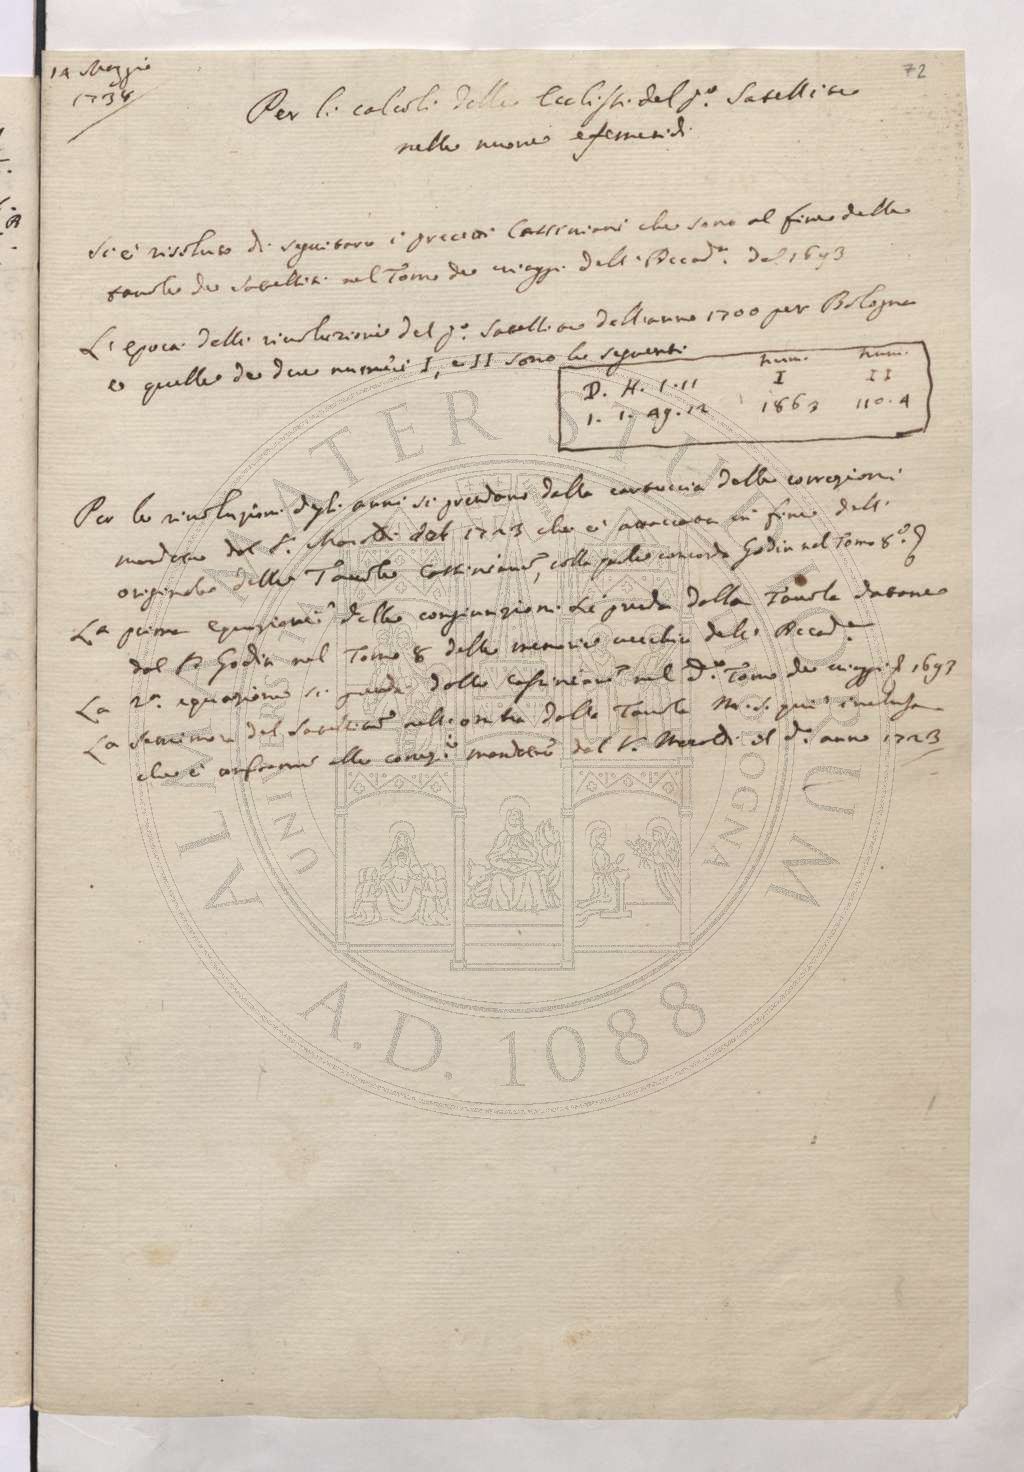 14 Maggio
1738
72
Per li calcoli delle Ecclissi del p.º Satellite
nelle nuove efemeridi
Si è risoluto di seguitare i precetti Cassiniani che sono al fine delle
tavole de Satelliti nel Tomo de viaggi dell' Accad.ª del 1693
L' epoca delle rivoluzioni del p.º Satellite dell'anno 1700 per Bologna
e quelle de due numeri I, e II sono le seguenti
D. H. I. II num. I num. II
1. 1. 49. 12 1863 110.4
Per le rivoluzioni degli anni si prendano dalla cartuccia delle correzioni
mandate dal S.r Maraldi del 1723 che è attaccata in fine dell'
originale delle Tavole Cassiniane, colla quale concorda Godin nel Tomo 8.º
La prima equazione delle congiunzioni si prenda dalla Tavola datane
dal S.r Godin nel Tomo 8 delle memorie vecchie dell' Accad.ª
La 2.ª equazione si prenda dalle Cassiniane nel d.º Tomo de viaggi 1693
La semimora del Satellite nell'ombra dalla Tavola M.S. qui inclusa
che è conforme alle correz.i mandate dal S.r Maraldi il d.º anno 1723
ALMA MATER STUDIORUM
UNIVERSITÀ DI BOLOGNA
A.D. 1088